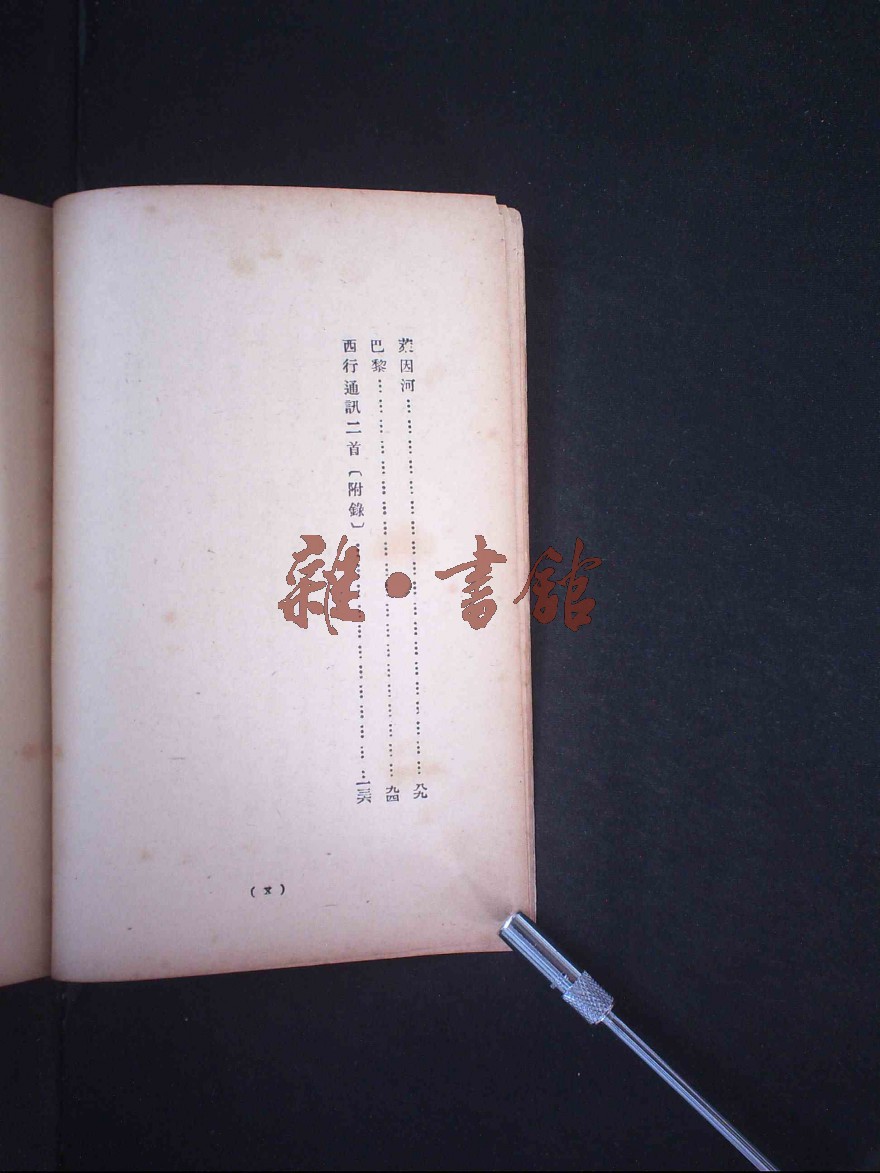 萊因河……………………八九
巴黎……………………九四
西行通訊二首〔附錄〕……………………一三六
雜●書館